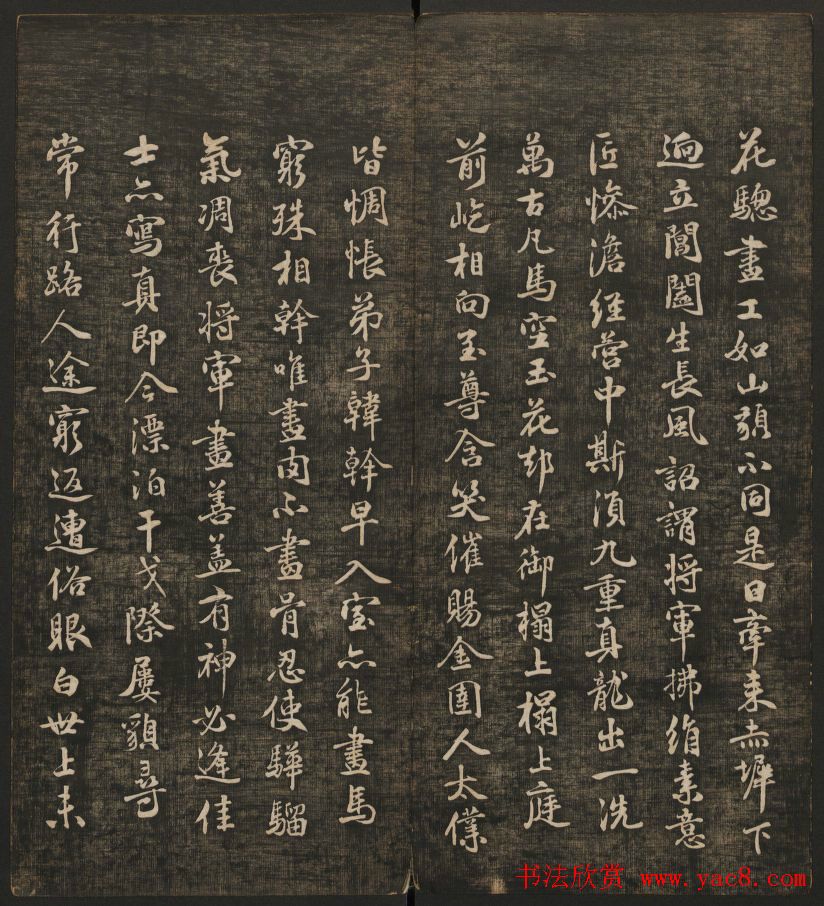 花驄畫工如山貌不同是日牽來赤墀下
迥立閶闔生長風詔謂將軍拂絹素意
匠慘澹經營中斯須九重真龍出一洗
萬古凡馬空玉花却在御榻上榻上庭
前屹相向至尊含笑催賜金圉人太僕
皆惆悵弟子韓幹早入室亦能畫馬
窮殊相幹唯畫肉不畫骨忍使驊騮
氣凋喪將軍畫善蓋有神必逢佳
士亦寫真即今漂泊干戈際屢貌尋
常行路人途窮返遭俗眼白世上未
书法欣赏 www.yac8.com